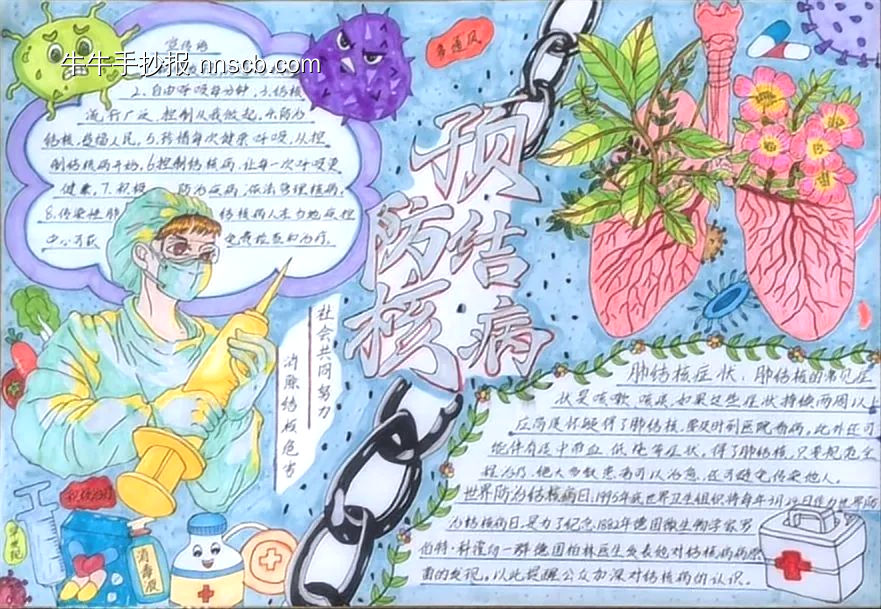 牛牛手抄报 nnscb.com
宣传语
2、自由呼吸每分钟。3、结核
流行广泛,控制从我做起。4、防治
结核,造福人民。5、珍惜每次健康呼吸,从控
制结核病开始。6、控制结核病,让每一次呼吸更
健康。7、积极 防治疾病,依法管理核病。
8、传染性肺 结核病人在当地疾控
中心可获 免费检查和治疗。
多通风
预
防结
核病
社会共同努力
消除结核危害
肺结核症状:肺结核的常见症
状是咳嗽、咳痰,如果这些症状持续两周以上
应高度怀疑得了肺结核,要及时到医院看病。此外还可
能伴有痰中带血、低烧等症状,得了肺结核,只要规范全
程治疗,绝大多数患者可以治愈,还可避免传染他人。
世界防治结核病日:1995年底世界卫生组织将每年3月24日作为世界防
治结核病日是为了纪念1882年德国微生物学家罗
伯特·科霍向一群德国柏林医生发表他对结核病病原
菌的发现。以此提醒公众加深对结核病的认识。
积极治疗
早发现
消毒液